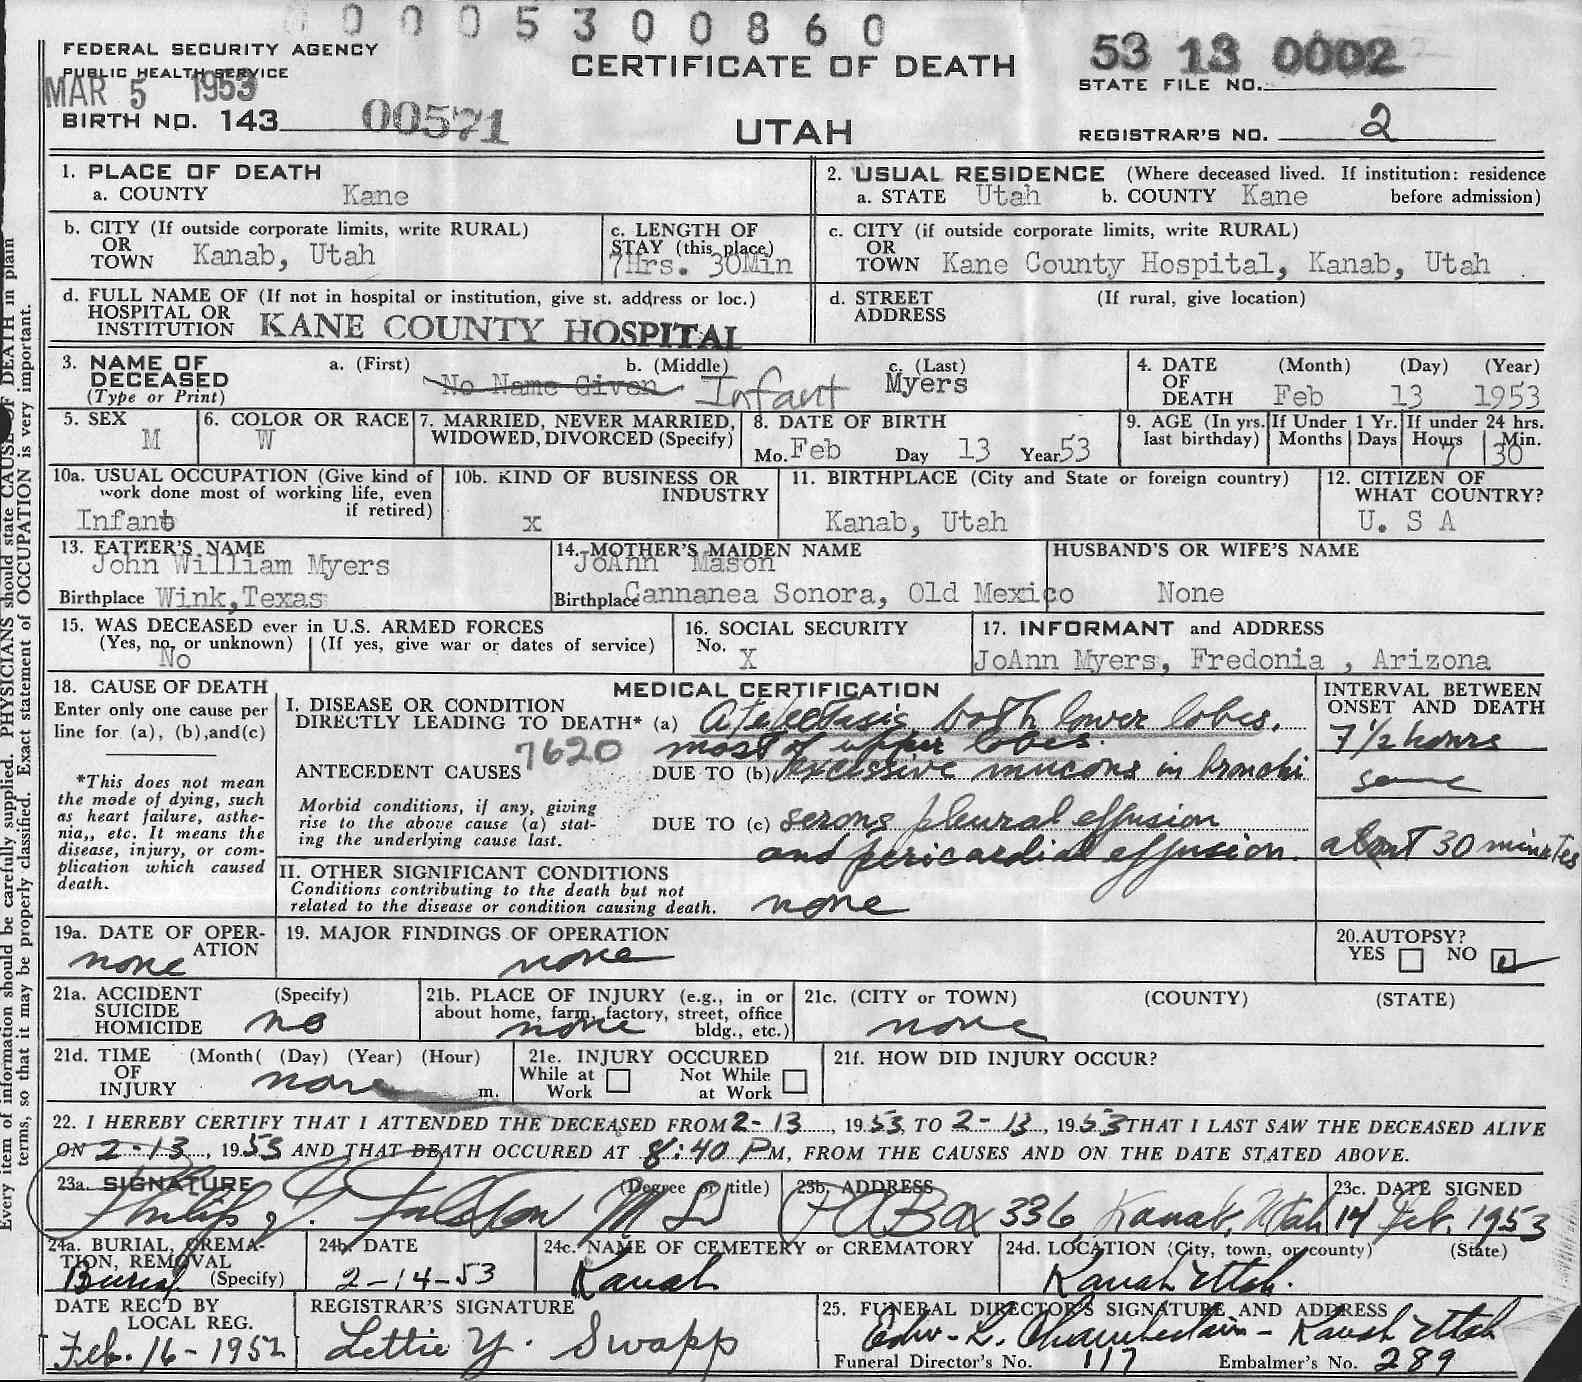 0 0 0 5 3 0 0 8 6 0
FEDERAL SECURITY AGENCY
PUBLIC HEALTH SERVICE
MAR 5 1953
CERTIFICATE OF DEATH
53 13 0002
STATE FILE NO.
BIRTH NO. 143 00571
UTAH
REGISTRAR'S NO. 2
1. PLACE OF DEATH
a. COUNTY Kane
2. USUAL RESIDENCE (Where deceased lived. If institution: residence
a. STATE Utah b. COUNTY Kane before admission)
b. CITY (If outside corporate limits, write RURAL)
OR
TOWN Kanab, Utah
c. LENGTH OF
STAY (this place)
7Hrs. 30Min
c. CITY (if outside corporate limits, write RURAL)
OR
TOWN Kane County Hospital, Kanab, Utah
d. FULL NAME OF (If not in hospital or institution, give st. address or loc.)
HOSPITAL OR
INSTITUTION KANE COUNTY HOSPITAL
d. STREET (If rural, give location)
ADDRESS
3. NAME OF a. (First) b. (Middle) c. (Last)
DECEASED No Name Given Infant Myers
(Type or Print)
4. DATE (Month) (Day) (Year)
OF
DEATH Feb 13 1953
5. SEX
M
6. COLOR OR RACE
W
7. MARRIED, NEVER MARRIED,
WIDOWED, DIVORCED (Specify)
8. DATE OF BIRTH
Mo. Feb Day 13 Year 53
9. AGE (In yrs. If Under 1 Yr. If under 24 hrs.
last birthday) Months Days Hours Min.
7 30
10a. USUAL OCCUPATION (Give kind of
work done most of working life, even
if retired)
Infant
10b. KIND OF BUSINESS OR
INDUSTRY
x
11. BIRTHPLACE (City and State or foreign country)
Kanab, Utah
12. CITIZEN OF
WHAT COUNTRY?
U. S A
13. FATHER'S NAME
John William Myers
Birthplace Wink, Texas
14. MOTHER'S MAIDEN NAME
JoAnn Mason
Birthplace Cannanea Sonora, Old Mexico
HUSBAND'S OR WIFE'S NAME
None
15. WAS DECEASED ever in U.S. ARMED FORCES
(Yes, no, or unknown) (If yes, give war or dates of service)
No
16. SOCIAL SECURITY
No. X
17. INFORMANT and ADDRESS
JoAnn Myers, Fredonia , Arizona
18. CAUSE OF DEATH
Enter only one cause per
line for (a), (b), and (c)
*This does not mean
the mode of dying, such
as heart failure, asthe-
nia,, etc. It means the
disease, injury, or com-
plication which caused
death.
MEDICAL CERTIFICATION
I. DISEASE OR CONDITION
DIRECTLY LEADING TO DEATH* (a) Atelectasis both lower lobes.
7620 most of upper lobes.
ANTECEDENT CAUSES DUE TO (b) Excessive mucous in bronchi
Morbid conditions, if any, giving
rise to the above cause (a) stat-
ing the underlying cause last.
DUE TO (c) serous pleural effusion
and pericardial effusion.
II. OTHER SIGNIFICANT CONDITIONS
Conditions contributing to the death but not
related to the disease or condition causing death.
none
INTERVAL BETWEEN
ONSET AND DEATH
7 1/2 hours
same
about 30 minutes
19a. DATE OF OPER-
ATION
none
19. MAJOR FINDINGS OF OPERATION
none
20. AUTOPSY?
YES NO
21a. ACCIDENT (Specify)
SUICIDE
HOMICIDE no
21b. PLACE OF INJURY (e.g., in or
about home, farm, factory, street, office
bldg., etc.)
none
21c. (CITY or TOWN) (COUNTY) (STATE)
none
21d. TIME (Month( (Day) (Year) (Hour)
OF
INJURY none m.
21e. INJURY OCCURED
While at Work Not While at Work
21f. HOW DID INJURY OCCUR?
22. I HEREBY CERTIFY THAT I ATTENDED THE DECEASED FROM 2-13, 1953, TO 2-13, 1953 THAT I LAST SAW THE DECEASED ALIVE
ON 2-13, 1953 AND THAT DEATH OCCURED AT 8:40 PM, FROM THE CAUSES AND ON THE DATE STATED ABOVE.
23a. SIGNATURE (Degree or title)
Philip G. M D
23b. ADDRESS
PO Box 336, Kanab, Utah
23c. DATE SIGNED
14 Feb. 1953
24a. BURIAL, CREMA-
TION, REMOVAL
Burial (Specify)
24b. DATE
2-14-53
24c. NAME OF CEMETERY or CREMATORY
Kanab
24d. LOCATION (City, town, or county) (State)
Kanab Utah.
DATE REC'D BY
LOCAL REG.
Feb. 16-1952
REGISTRAR'S SIGNATURE
Lettie Y. Swapp
25. FUNERAL DIRECTOR'S SIGNATURE AND ADDRESS
Edw- L. Chamberlain - Kanab Utah
Funeral Director's No. 117 Embalmer's No. 289
Every item of information should be carefully supplied. PHYSICIANS should state CAUSE OF DEATH in plain
terms, so that it may be properly classified. Exact statement of OCCUPATION is very important.